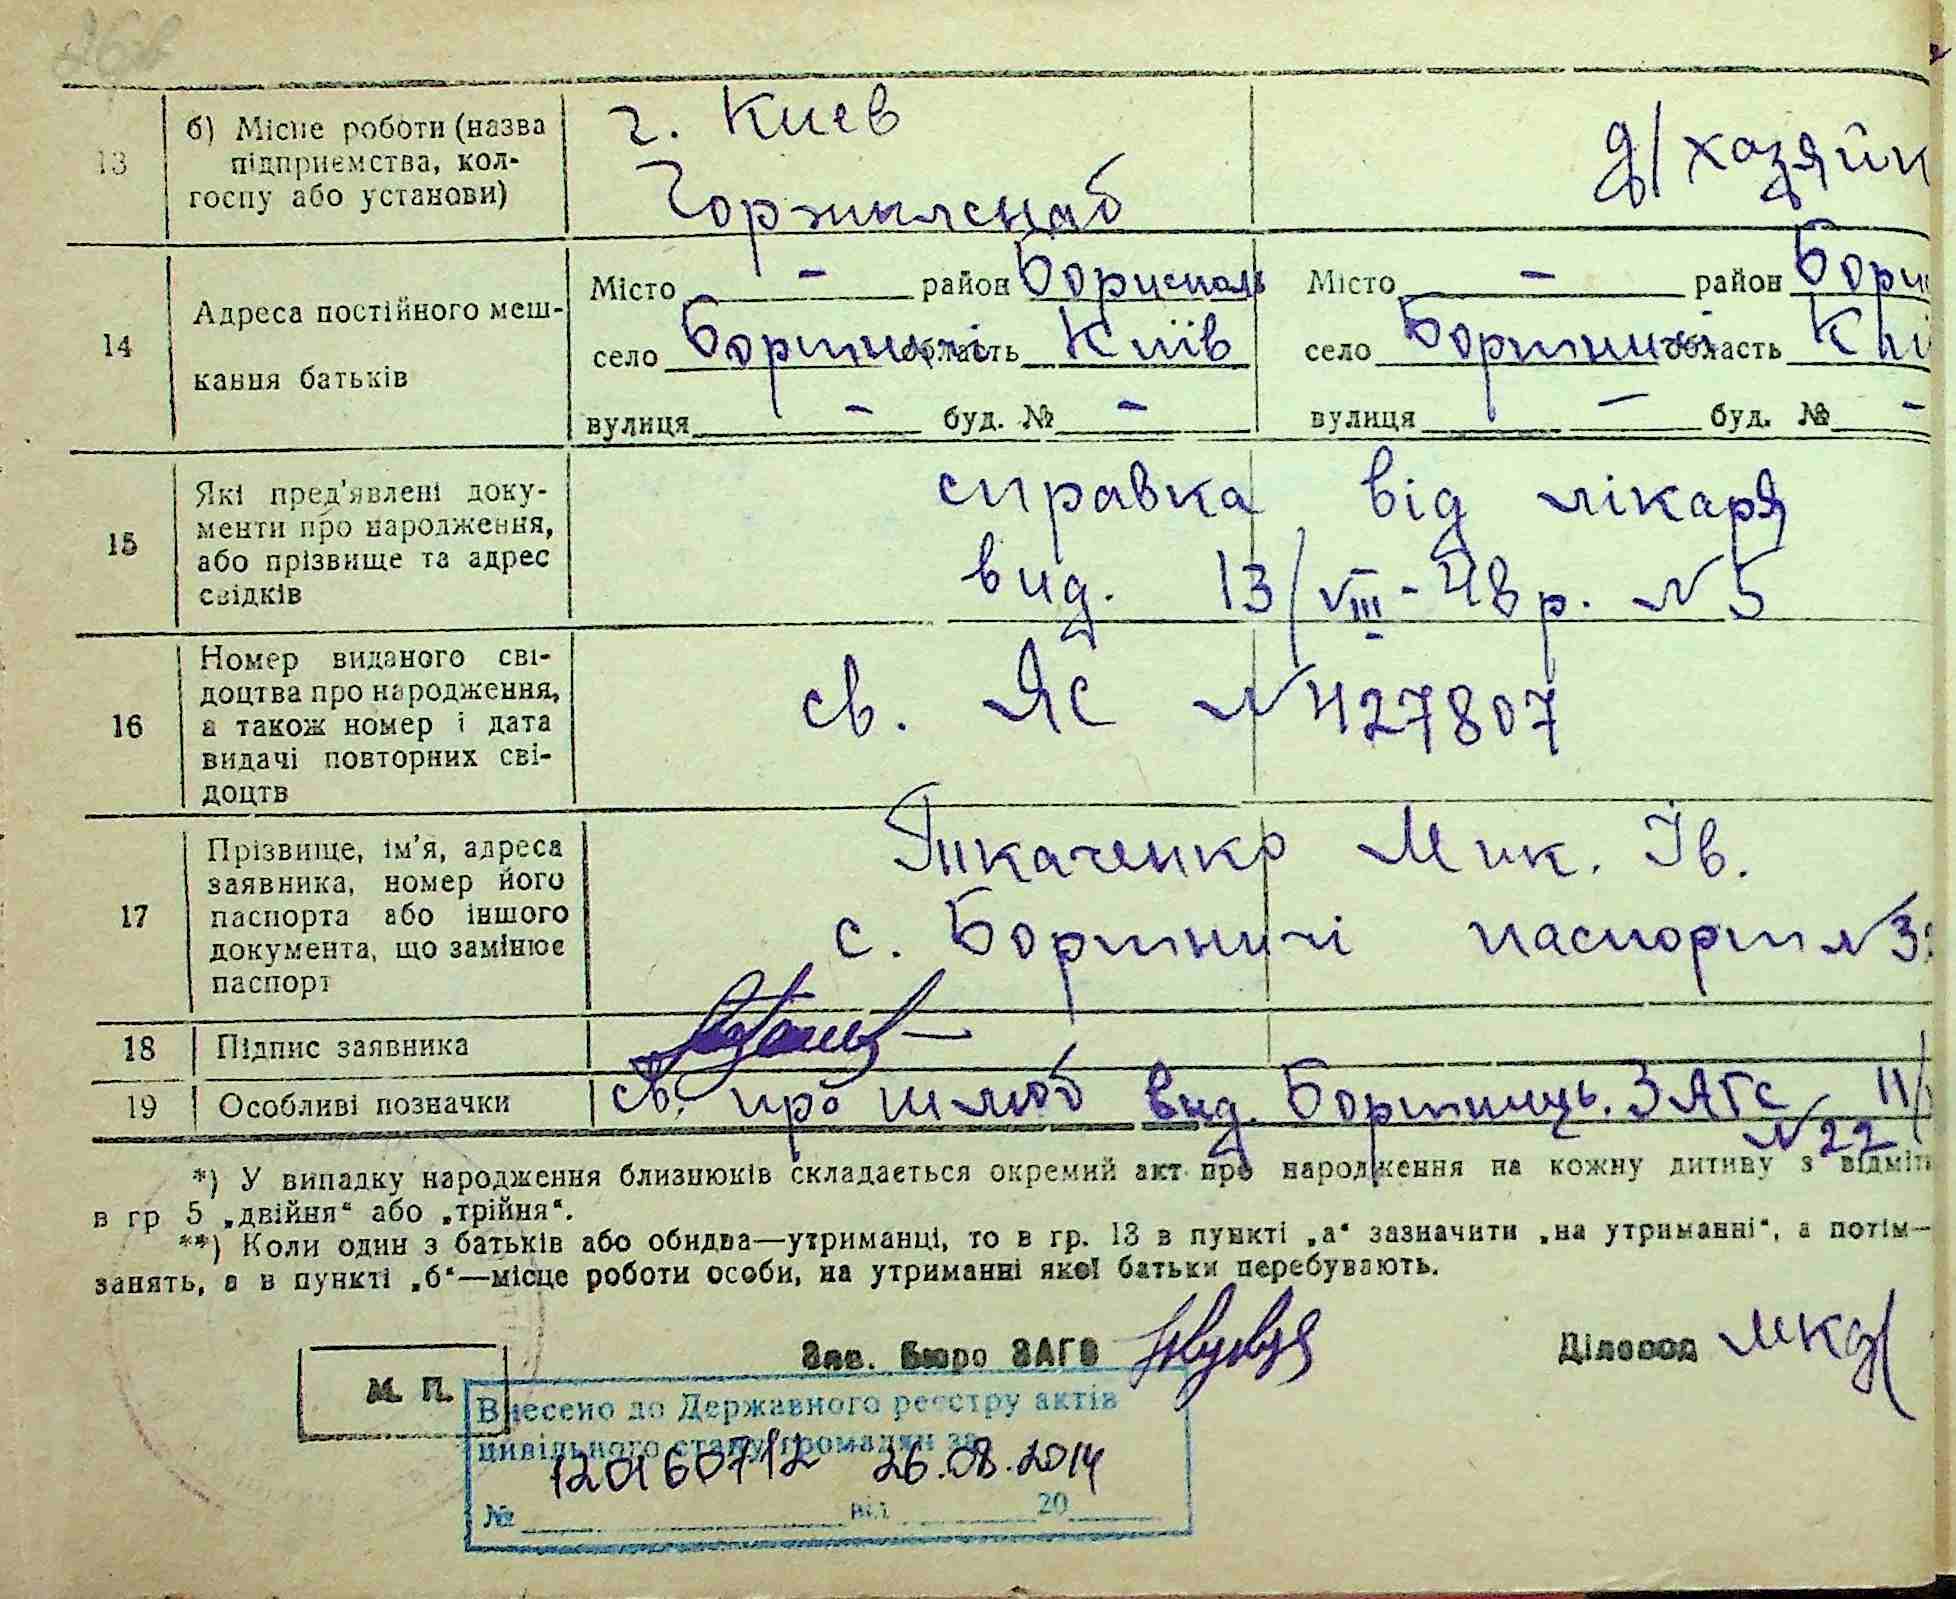 13
б) Місце роботи (назва
підприємства, кол-
госпу або установи)
г. Киев
Горжилснаб
д/хазяйк
14
Адреса постійного меш-
кання батьків
Місто – район Бориспіль
село Бортничі область Київ
вулиця – буд. № –
Місто – район Бори
село Бортничі область Киї
вулиця – буд. № –
15
Які пред'явлені доку-
менти про народження,
або прізвище та адрес
свідків
справка від лікаря
вид. 13/VIII-48 р. №5
16
Номер виданого сві-
доцтва про народження,
а також номер і дата
видачі повторних сві-
доцтв
св. ЯС №427807
17
Прізвище, ім'я, адреса
заявника, номер його
паспорта або іншого
документа, що замінює
паспорт
Ткаченко Мик. Ів.
с. Бортничі паспорт №3
18
Підпис заявника
19
Особливі позначки
св. про шлюб вид. Бортниць. ЗАГС 11/
№22
*) У випадку народження близнюків складається окремий акт про народження на кожну дитину з відміт
в гр 5 „двійня“ або „трійня“.
**) Коли один з батьків або обидва—утриманці, то в гр. 13 в пункті „а“ зазначити „на утриманні“, а потім—
занять, а в пункті „б“—місце роботи особи, на утриманні якої батьки перебувають.
Зав. Бюро ЗАГС
Діловод
М. П.
Внесено до Державного реєстру актів
цивільного стану громадян за
120160712 26.08.2014
№ від 20